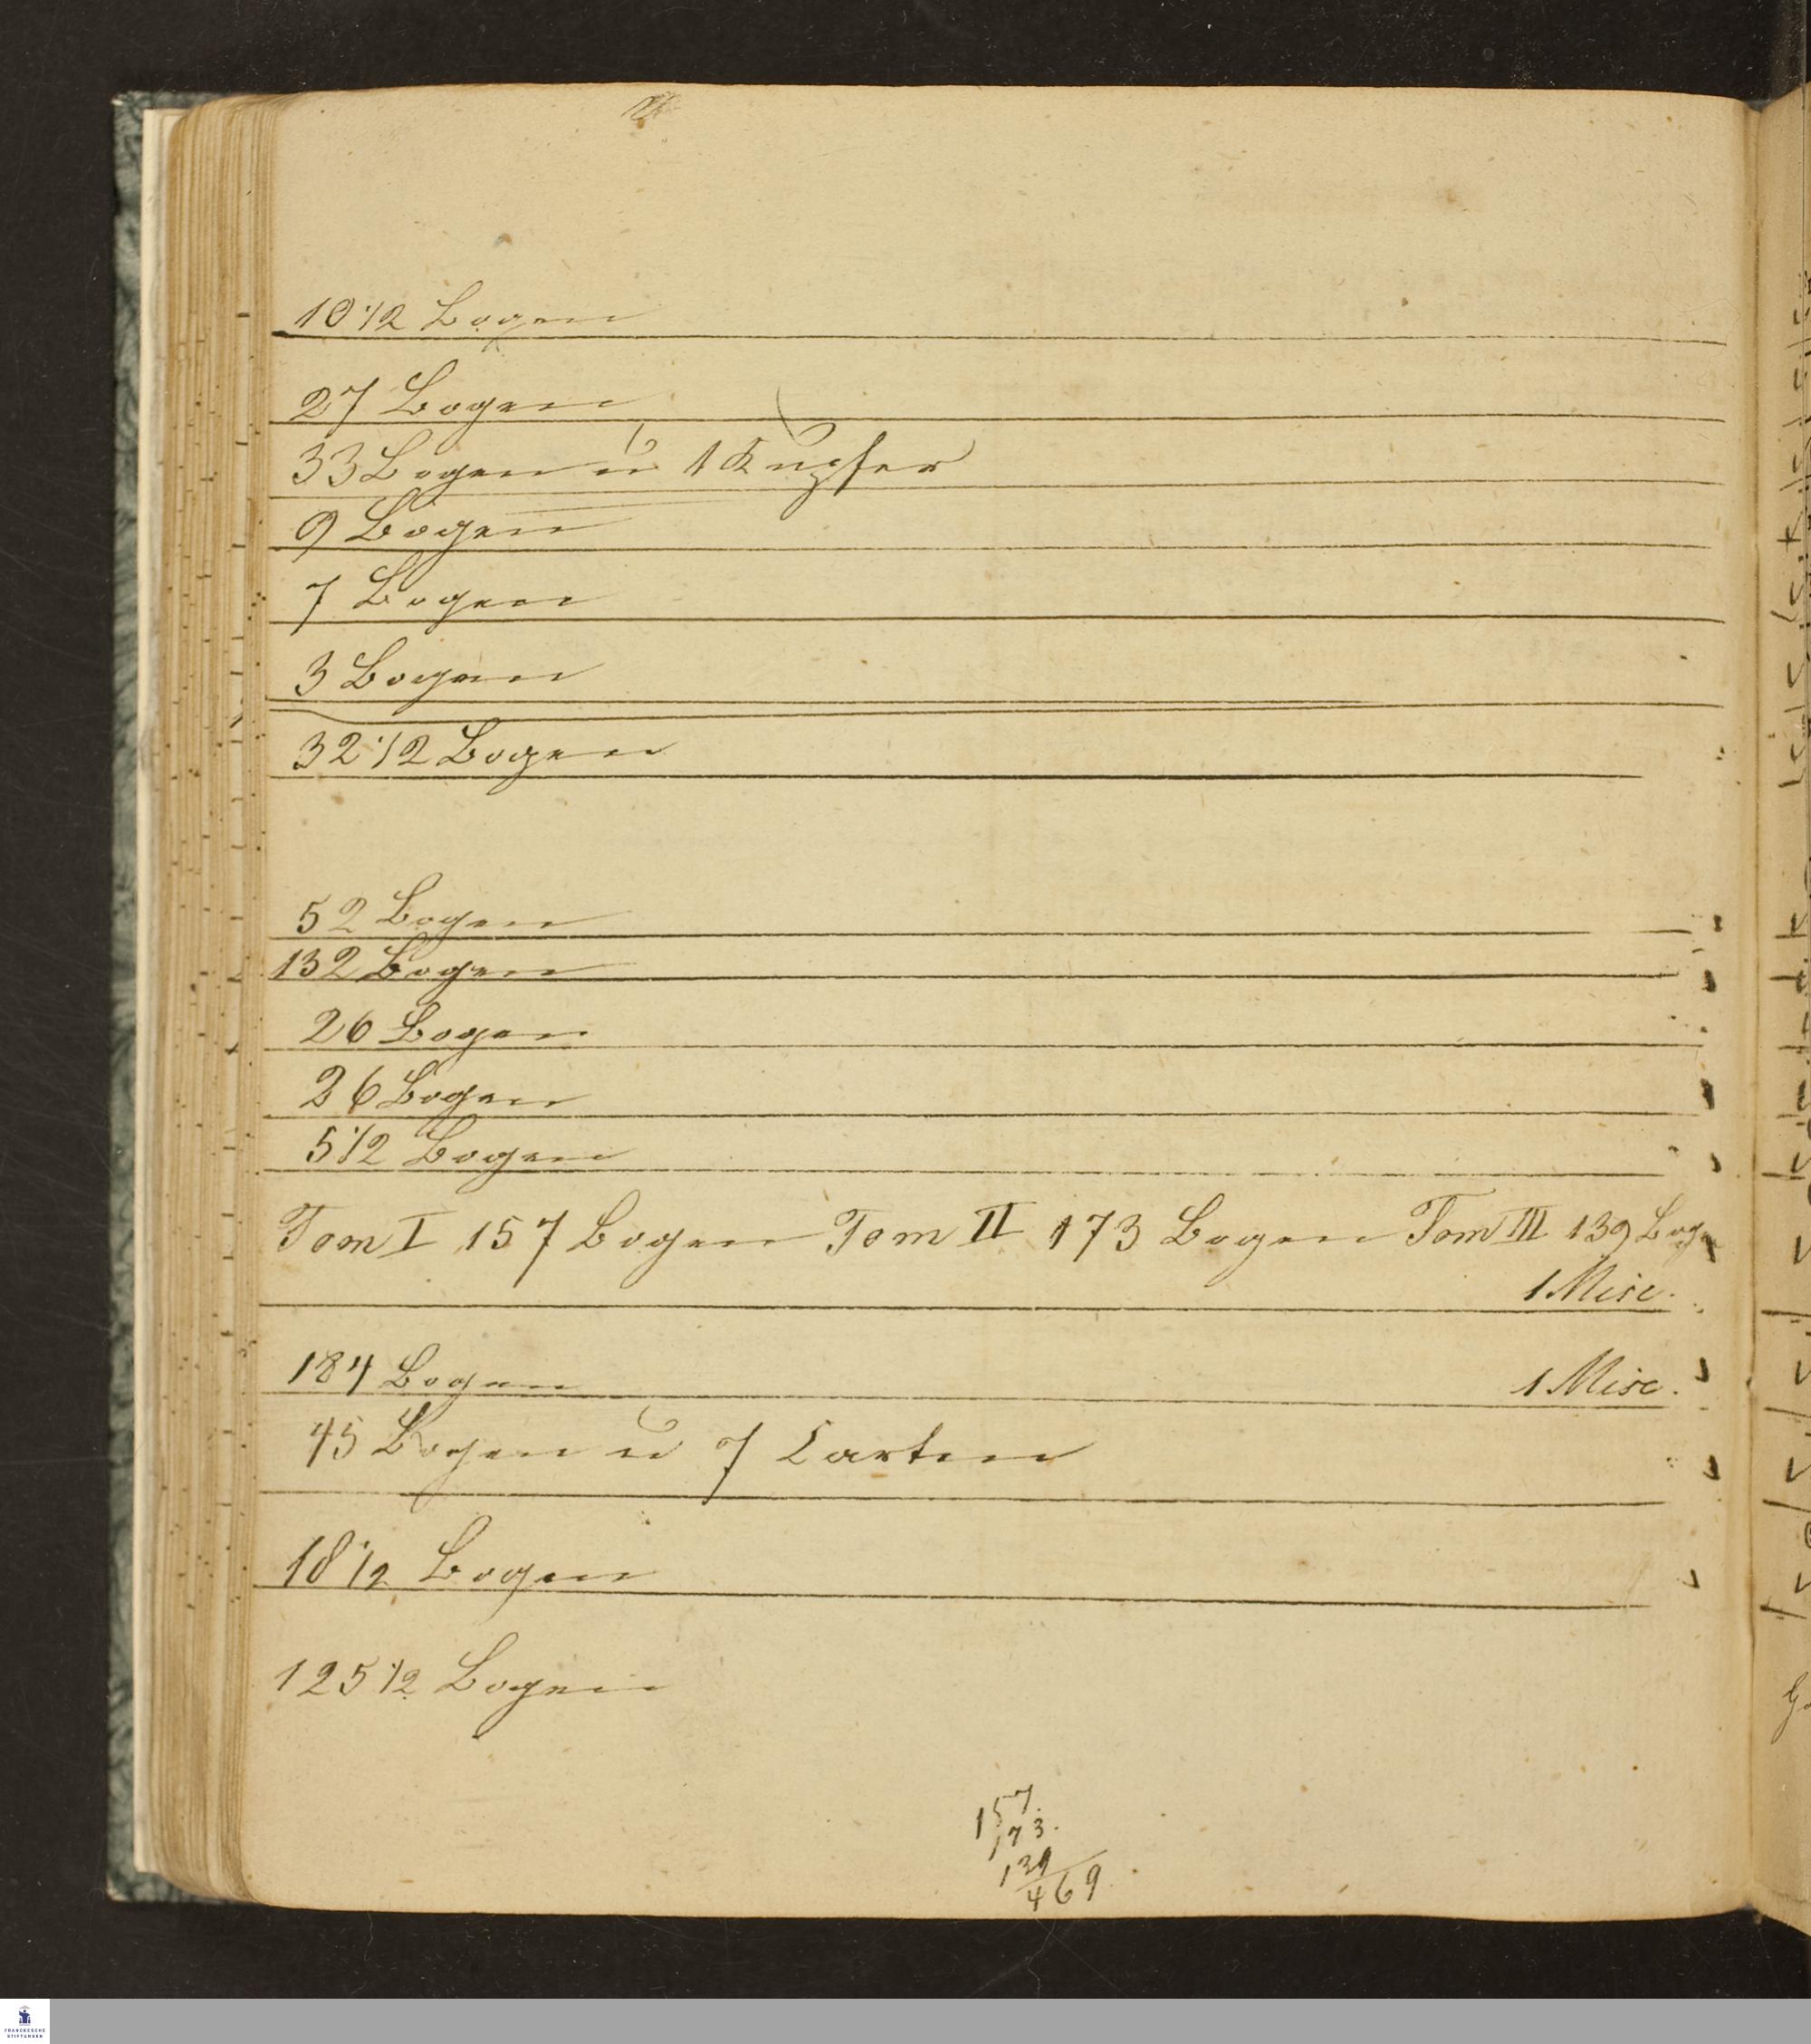 10 1/2 Bogen
27 Bogen
33 Bogen u 1 Kupfer
9 Bogen
7 Bogen
3 Bogen
32 1/2 Bogen
52 Bogen
132 Bogen
26 Bogen
26 Bogen
5 1/2 Bogen
Tom I 157 Bogen Tom II 173 Bogen Tom III 139 Bog
1 Misc.
184 Bogen 1 Misc.
45 Bogen u 7 Carten
18 1/2 Bogen
125 1/2 Bogen
157.
173.
139
469
FRANCKESCHE
STIFTUNGEN